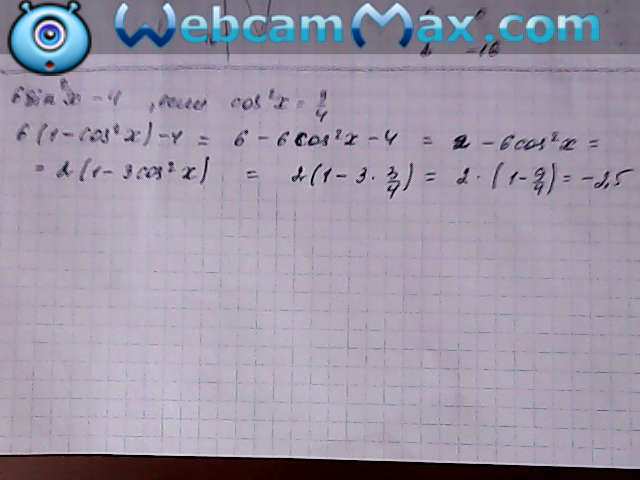 WebcamMax.com
-16
6 sin²x - 4 , если cos²x = 3/4
6(1 - cos²x) - 4 = 6 - 6cos²x - 4 = 2 - 6cos²x =
= 2(1 - 3cos²x) = 2(1 - 3 · 3/4) = 2 · (1 - 9/4) = -2,5